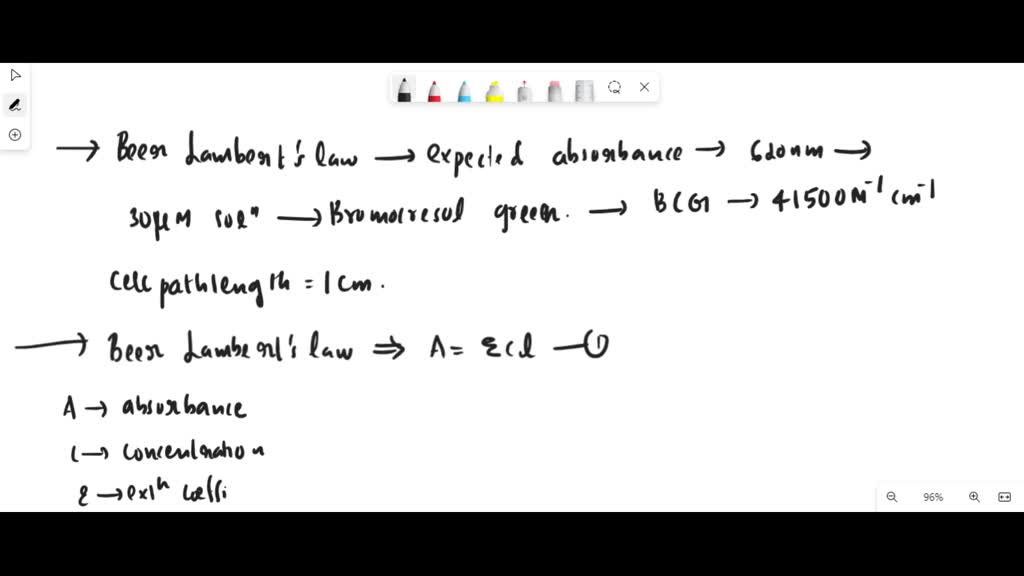 → Beer Lambert's law → expected absorbance → 620nm →
30μM solⁿ → Bromocresol green. → BCG → 41500M⁻¹ cm⁻¹
Cell pathlength = 1cm.
→ Beer Lambert's law ⇒ A = εcl —①
A → absorbance
c → concentration
ε → extⁿ coeffi
96%